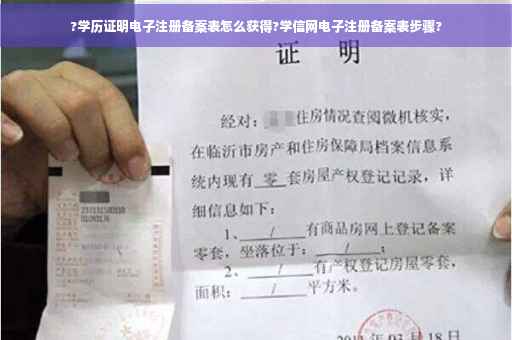 ?学历证明电子注册备案表怎么获得?学信网电子注册备案表步骤?
证 明
经对：住房情况查阅微机核实，
在临沂市房产和住房保障局档案信息系
统内现有 零 套房屋产权登记记录，详
细信息如下：
1、 / 有商品房网上登记备案
零套，坐落位于： / ；
2、 / 有产权登记房屋零套，
面积： / 平方米。
03月18日